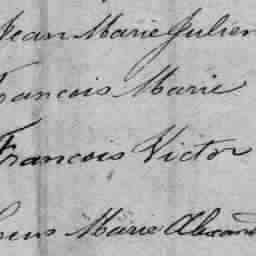 Jean Marie Julien
Francois Marie
Francois Victor
Marie Alexand